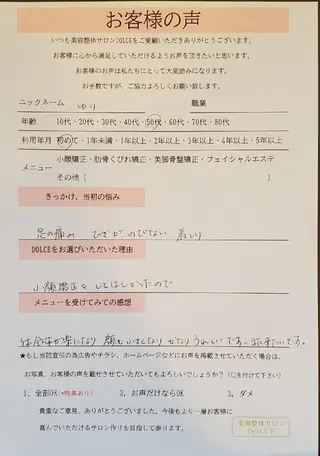 お客様の声
いつも美容整体サロンDOLCEをご愛顧いただきありがとうございます。
お客様に心から満足していただけるようお声を頂きたいと思います。
お客様のお声は私たちにとって大変励みになります。
お手数ですが、ご協力よろしくお願い致します。
ニックネーム ゆり 職業
年齢 10代・20代・30代・40代・50代・60代・70代・80代
利用年月 初めて・1年未満・1年以上・2年以上・3年以上・4年以上・5年以上
メニュー 小顔矯正・肋骨くびれ矯正・美脚骨盤矯正・フェイシャルエステ
その他(                    )
きっかけ、当初の悩み
足の痛み ひざがのびない 肩こり
DOLCEをお選びいただいた理由
小顔矯正をしてほしかったので
メニューを受けてみての感想
体全体が楽になり 顔も小さくなり うれしいです。また来たいです。
★もし当院宣伝の為広告やチラシ、ホームページなどにお声を掲載させていただく場合は、
お写真、お客様の声を載せさせていただいてもよろしいでしょうか?(○を付けて下さい)
1、全部OK(*特典あり) 2、お声だけならOK 3、ダメ
貴重なご意見、ありがとうございました。今後もより一層お客様に
喜んでいただけるサロン作りを目指して参ります。
美容整体サロン
DOLCE